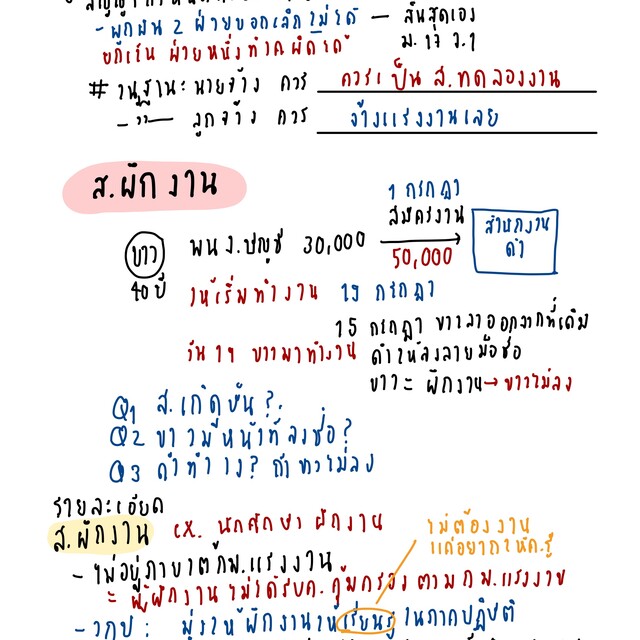 - ผูกพัน 2 ฝ่ายบอกเลิกไม่ได้ — สิ้นสุดเอง
ยกเว้น ฝ่ายหนึ่งทำผิด ม. 17 ว.1
# ในฐานะนายจ้าง ควร ควรเป็น ส.ทดลองงาน
- —"— ลูกจ้าง ควร จ้างแรงงานเลย
ส.ฝึกงาน
1 กรกฎา
ขาว พนง.บัญชี 30,000 สมัครงาน สำนักงาน
50,000 ดำ
40 ปี ให้เริ่มทำงาน 19 กรกฎา
15 กรกฎา ขาวลาออกจากที่เดิม
วัน 19 ขาวมาทำงาน ดำให้ลงลายมือชื่อ
ขาว = ฝึกงาน → ขาวไม่ลง
Q1 ส.เกิดยัง?
Q2 ขาวมีหน้าที่ลงชื่อ?
Q3 ดำทำไง? ถ้าขาวไม่ลง
รายละเอียด
ส.ฝึกงาน ex. นักศึกษาฝึกงาน
ไม่ต้องงาน
แค่อยากให้ค.รู้
- ไม่อยู่ภายใต้กม.แรงงาน
= ผู้ฝึกงานไม่ได้รับค.คุ้มครองตามกม.แรงงาน
- วกป : มุ่งให้ฝึกงานให้เรียนรู้ในภาคปฏิบัติ